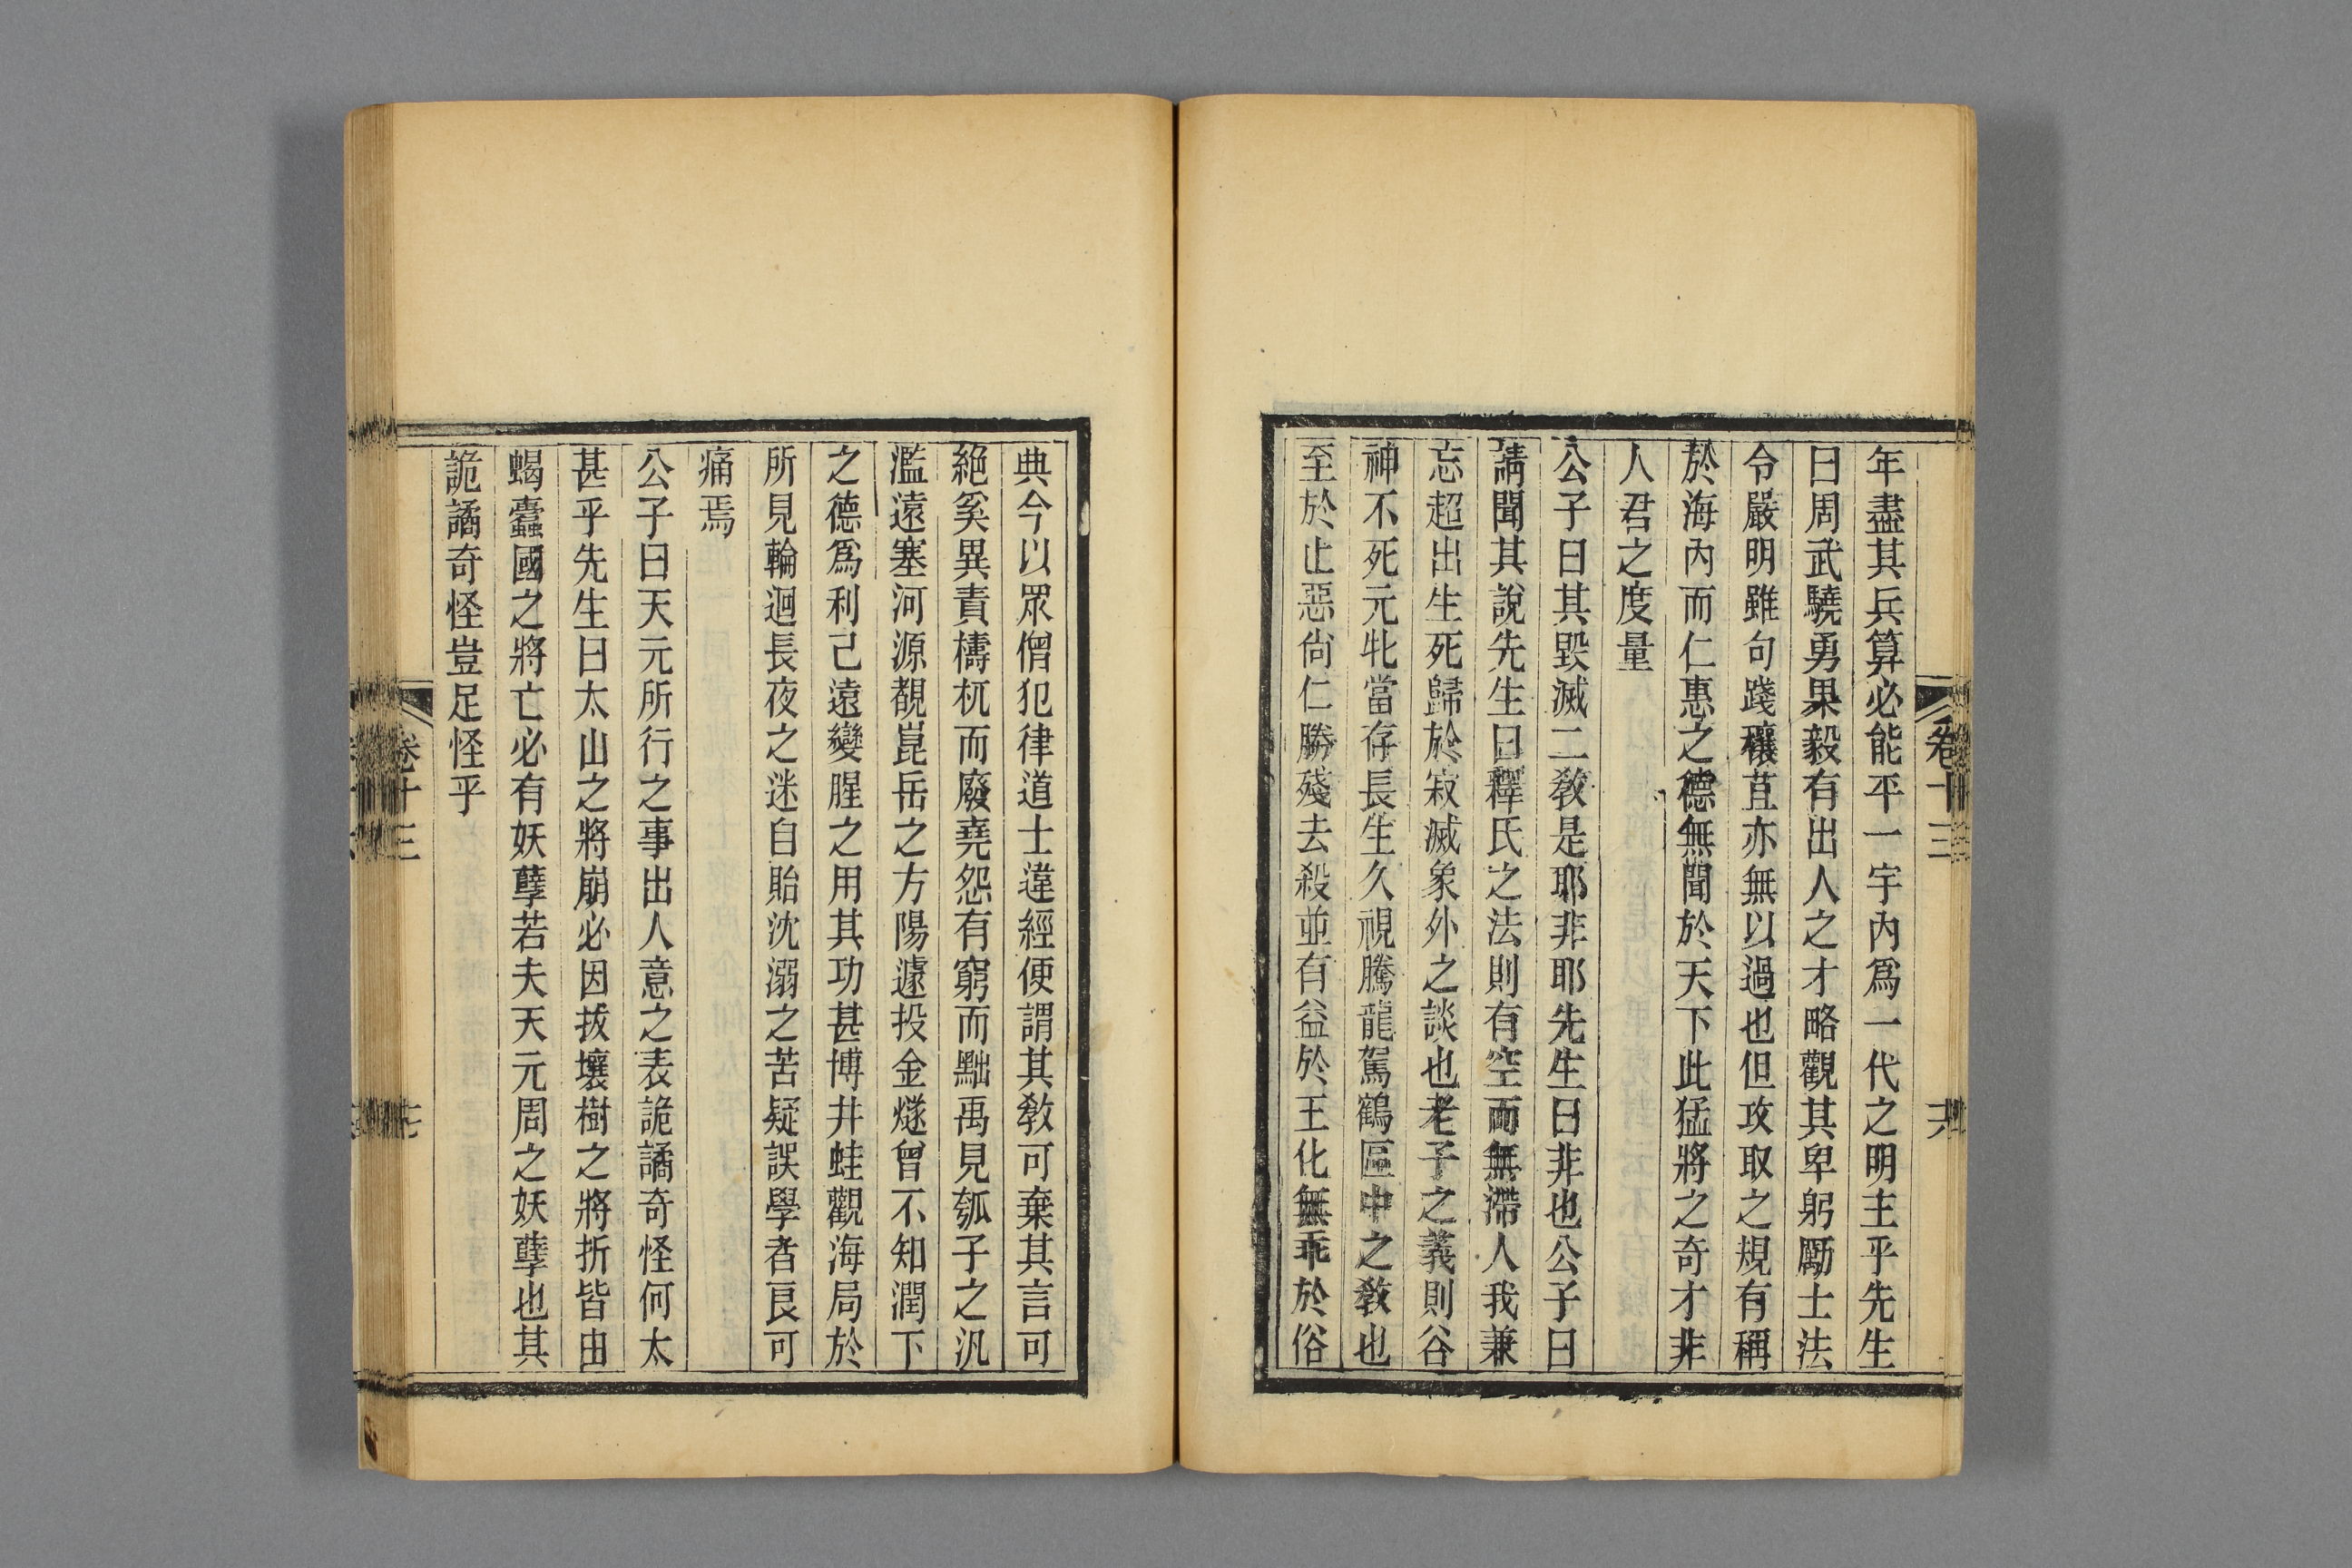 卷十三
六
年盡其兵算必能平一宇內爲一代之明主乎先生
曰周武驍勇果毅有出人之才略觀其卑躬勵士法
令嚴明雖句踐穰苴亦無以過也但攻取之規有稱
於海內而仁惠之德無聞於天下此猛將之奇才非
人君之度量
公子曰其毀滅二敎是耶非耶先生曰非也公子曰
請聞其說先生曰釋氏之法則有空而無滯人我兼
忘超出生死歸於寂滅象外之談也老子之義則谷
神不死元牝當存長生久視騰龍駕鶴區中之敎也
至於止惡尙仁勝殘去殺並有益於王化無乖於俗
典今以眾僧犯律道士違經便謂其敎可棄其言可
絕奚異責檮杌而廢堯怨有窮而黜禹見瓠子之汎
濫遠塞河源覩崑岳之方陽遽投金燧曾不知潤下
之德爲利己遠變腥之用其功甚博井蛙觀海局於
所見輪迴長夜之迷自貽沈溺之苦疑誤學者良可
痛焉
公子曰天元所行之事出人意之表詭譎奇怪何太
甚乎先生曰太山之將崩必因拔壤樹之將折皆由
蝎蠹國之將亡必有妖孽若夫天元周之妖孽也其
詭譎奇怪豈足怪乎
卷十三
七